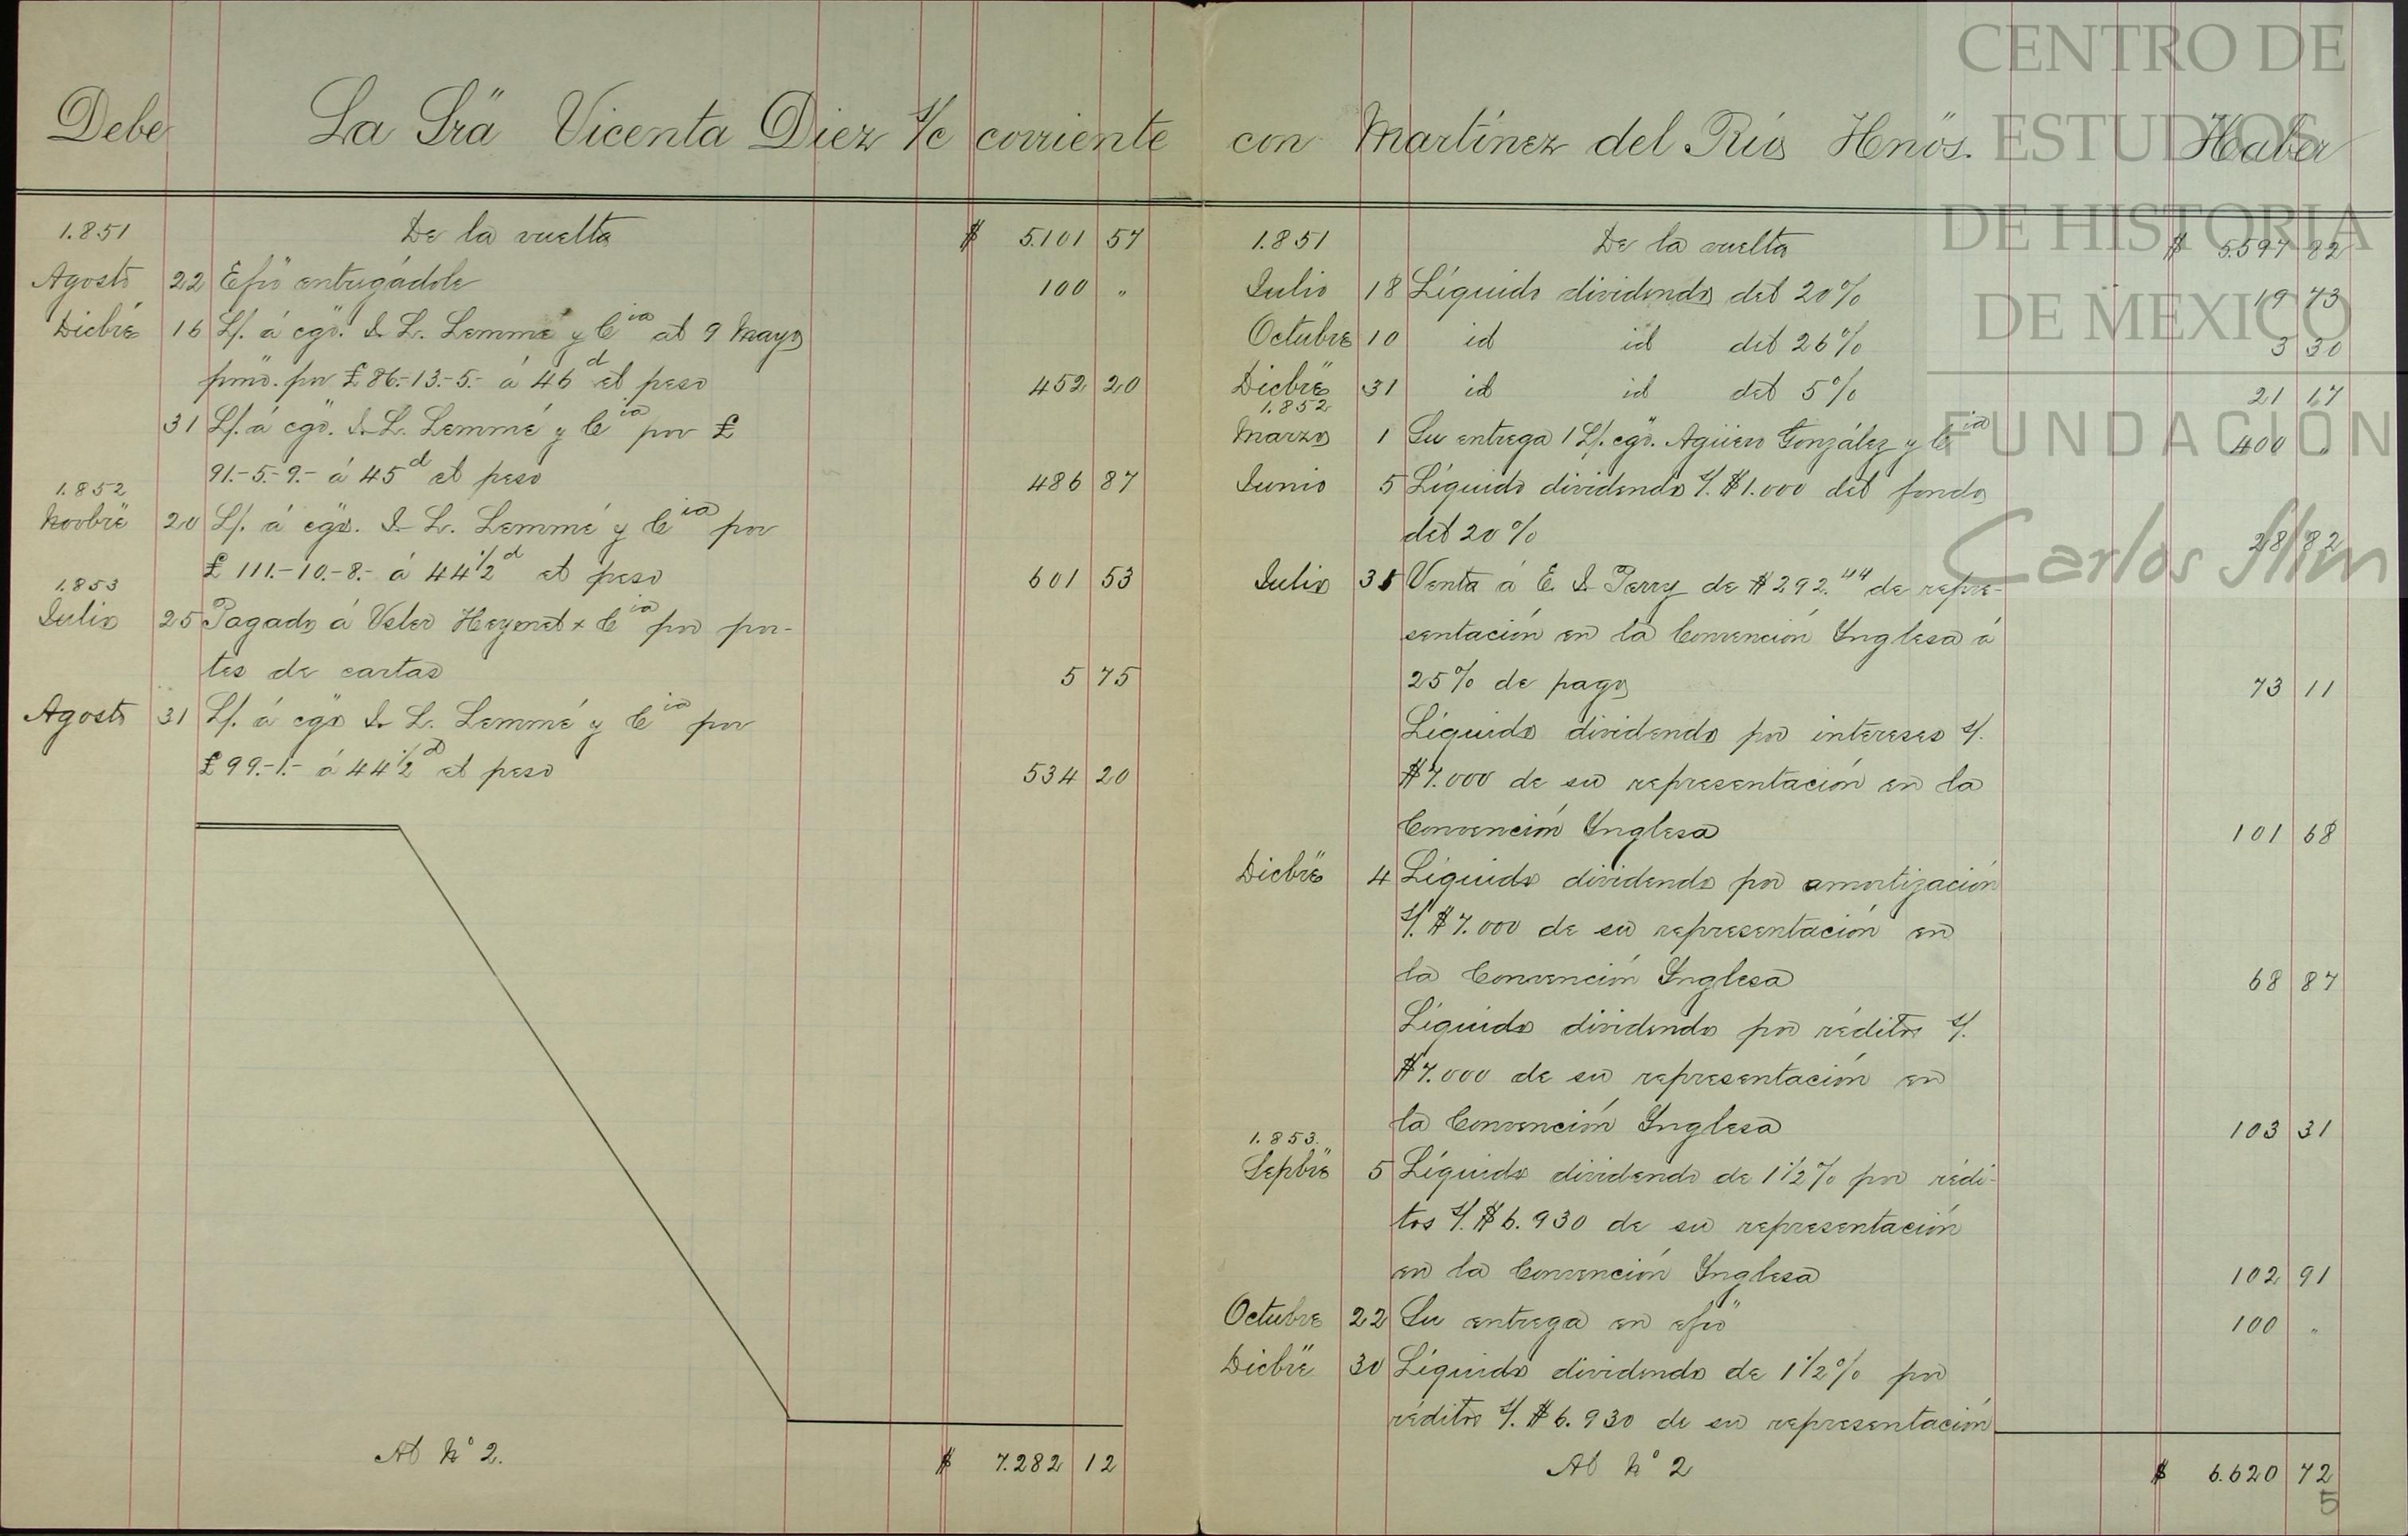 Debe La Srä Vicenta Diez s/c corriente con Martínez del Río Hnös. Haber
1.851 De la vuelta $ 5.101 57
Agosto 22 Efvö entregádole 100 "
Dicbrë 16 L/. á cgö. J. L. Lemmé y Cía al 9 Mayo
pmö. por £ 86.-13.-5.- á 46d el peso 452 20
31 L/. á cgö. J. L. Lemmé y Cía por £
91.-5.-9.- á 45d el peso 486 87
1.852
Novbrë 20 L/. á cgö. J. L. Lemmé y Cía por
£ 111.-10.-8.- á 44 1/2d el peso 601 53
1.853
Julio 25 Pagado á Heymel x Cía por por-
tes de cartas 5 75
Agosto 31 L/. á cgö J. L. Lemmé y Cía por
£ 99.-1.- á 44 1/2d el peso 534 20
Al No 2. $ 7.282 12
1.851 De la vuelta $ 5.597 82
Julio 18 Líquido dividendo del 20% 19 73
Octubre 10 id id del 26% 3 30
Dicbrë 31 id id del 5% 21 17
1.852
Marzo 1 Su entrega 1 L/. cgö. Agüero González y Cía 400 "
Junio 5 Líquido dividendo s/. $1.000 del fondo
del 20% 28 82
Julio 31 Venta á E. J. Perry de $292.44 de repre-
sentación en la Convención Inglesa á
25% de pago 73 11
Líquido dividendo por intereses s/.
$7.000 de su representación en la
Convención Inglesa 101 68
Dicbrë 4 Líquido dividendo por amortización
s/. $7.000 de su representación en
la Convención Inglesa 68 87
Líquido dividendo por réditos s/.
$7.000 de su representación en
la Convención Inglesa 103 31
1.853.
Sepbrë 5 Líquido dividendo de 1 1/2% por rédi-
tos s/. $6.930 de su representación
en la Convención Inglesa 102 91
Octubre 22 Su entrega en efvö 100 "
Dicbrë 30 Líquido dividendo de 1 1/2% por
réditos s/. $6.930 de su representación
Al No 2 $ 6.620 72
5
CENTRO DE
ESTUDIOS
DE HISTORIA
DE MEXICO
FUNDACIÓN
Carlos Slim